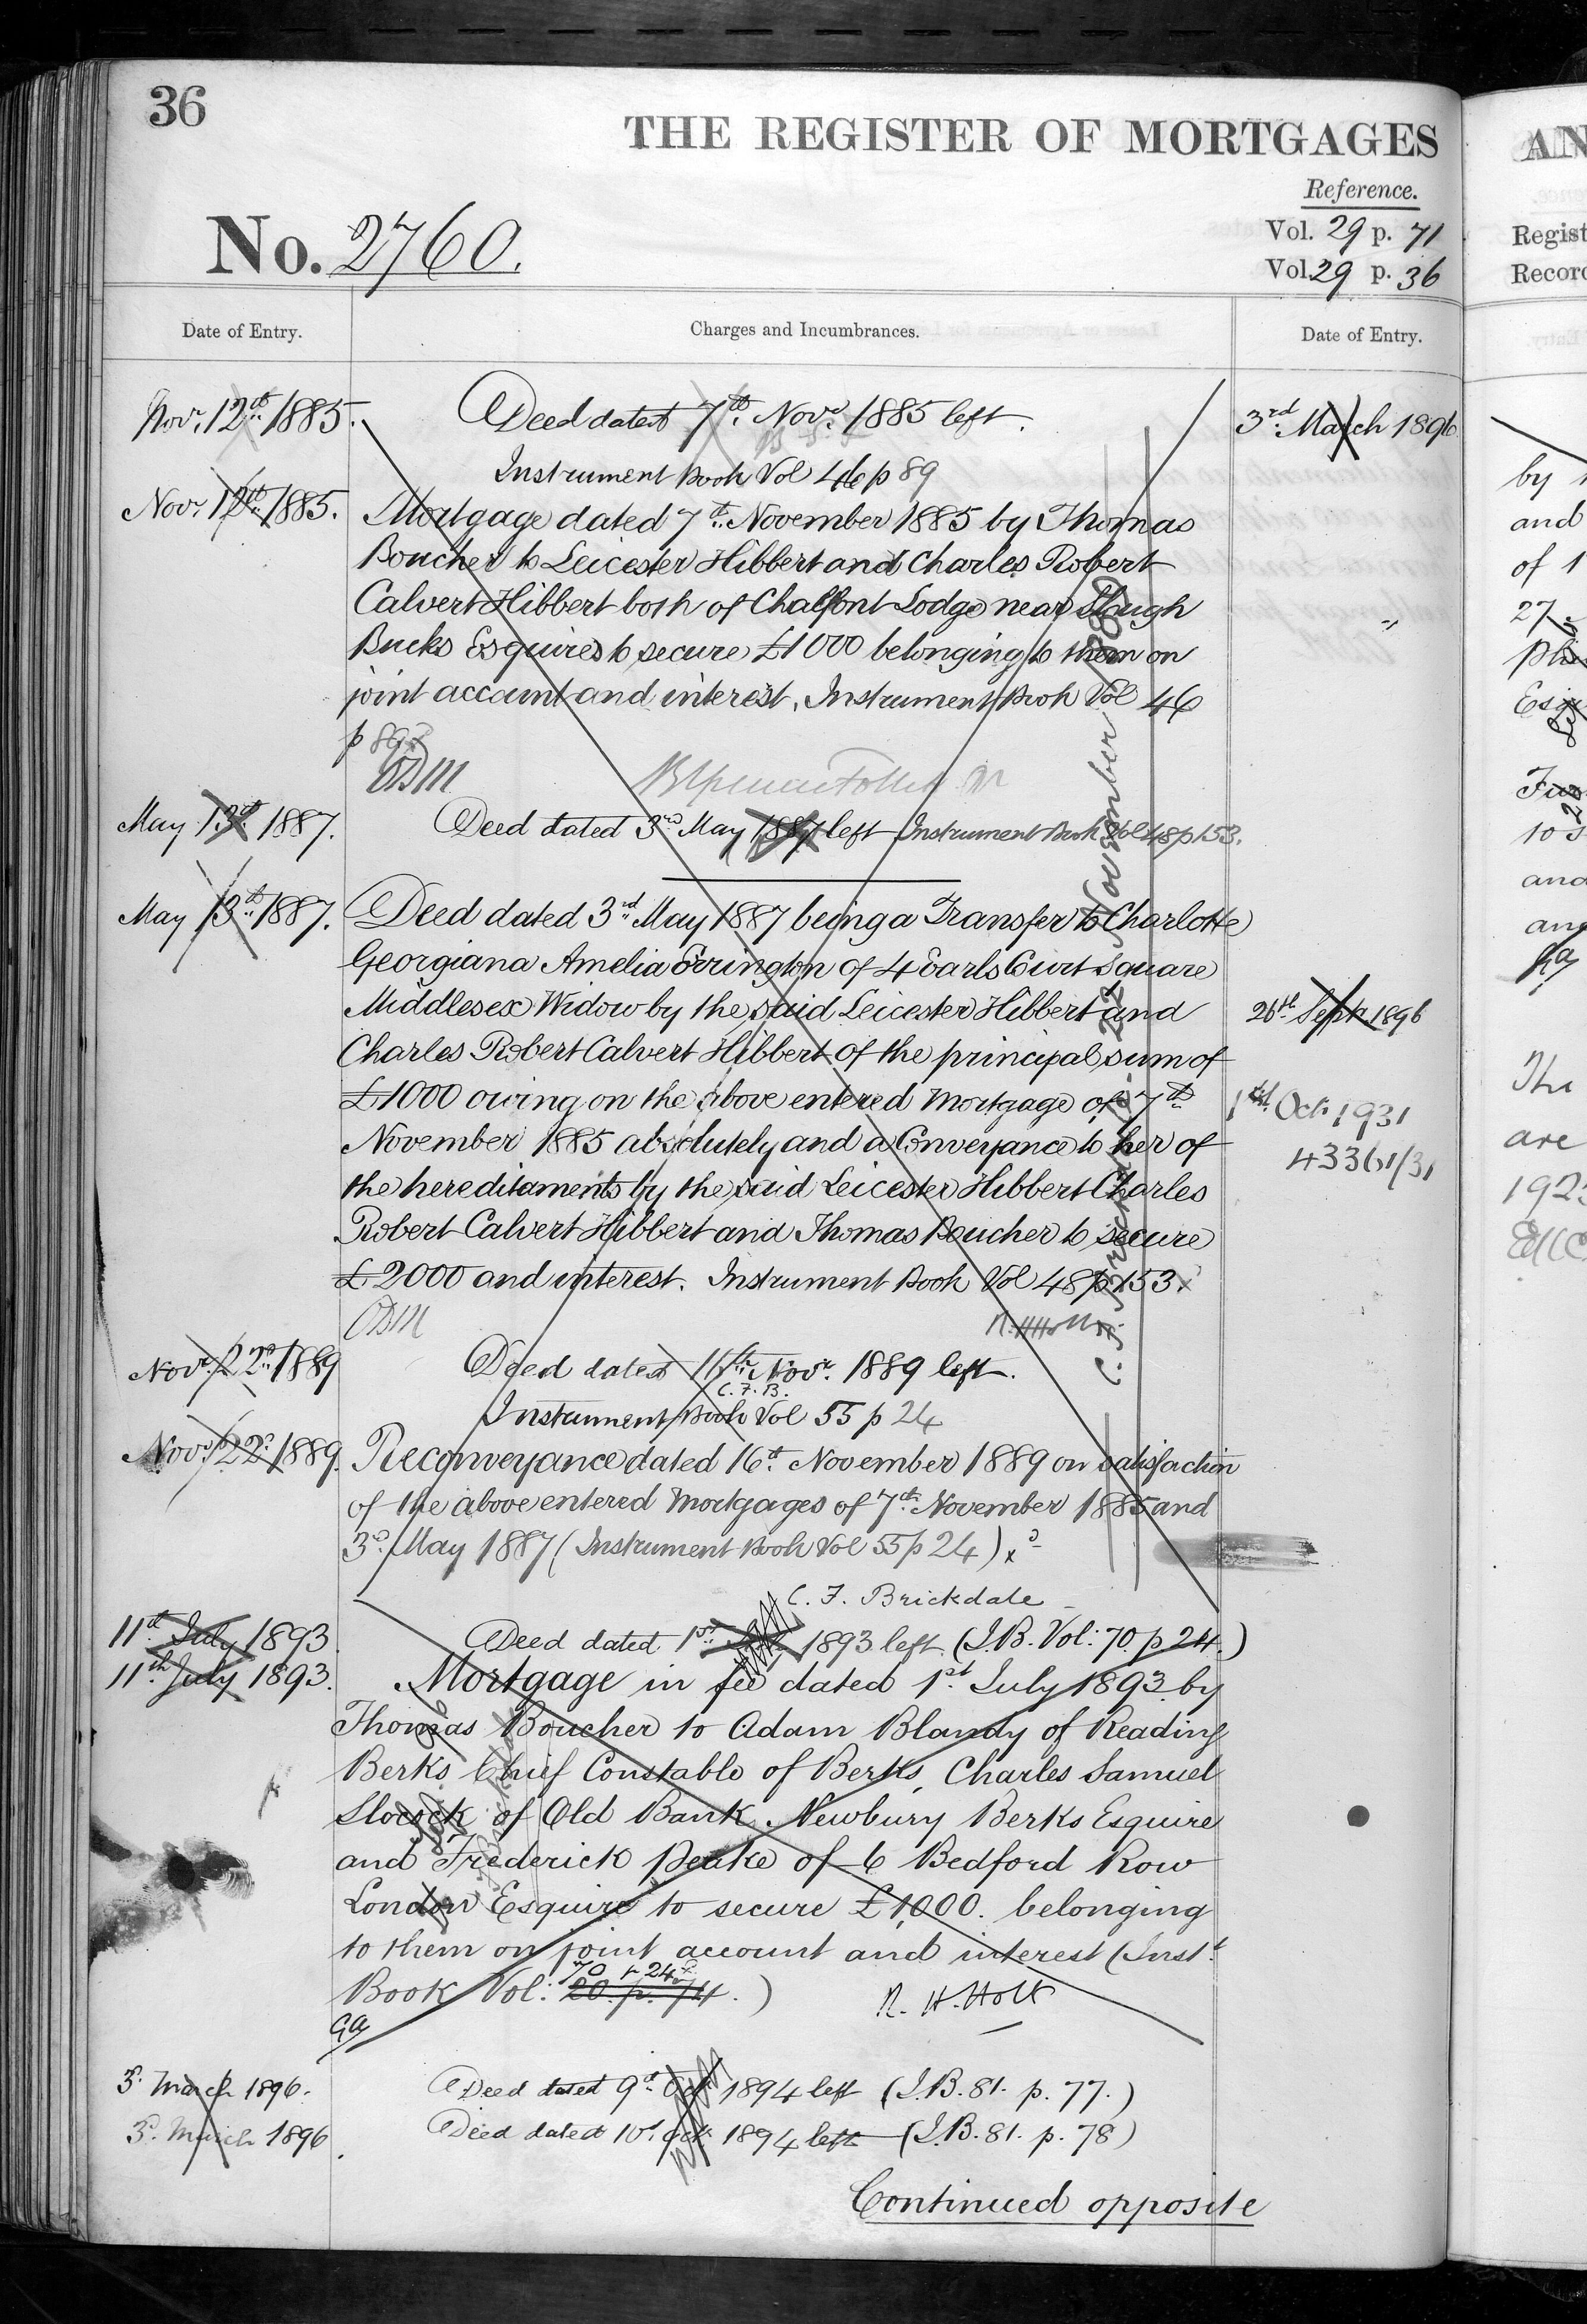 36
THE REGISTER OF MORTGAGES
Reference.
No. 2760.
Vol. 29 p. 71
Vol. 29 p. 36
Date of Entry.
Charges and Incumbrances.
Date of Entry.
Novr. 12th 1885.
Deed dated 7th Novr. 1885 left.
3rd March 1896
Instrument Book Vol 46 p 89
Novr. 12th 1885.
Mortgage dated 7th November 1885 by Thomas
Boucher to Leicester Hibbert and Charles Robert
Calvert Hibbert both of Chalfont Lodge near Slough
Bucks Esquires to secure £1000 belonging to them on
joint account and interest. Instrument Book Vol 46
p 89
May 13th 1887.
Deed dated 3rd May 1887 left Instrument Book Vol 48 p 153.
May 13th 1887.
Deed dated 3rd May 1887 being a Transfer to Charlotte
Georgiana Amelia Errington of 4 Earls Court Square
Middlesex Widow by the said Leicester Hibbert and
26th Septr 1896
Charles Robert Calvert Hibbert of the principal sum of
£1000 owing on the above entered Mortgage of 7th
1st Oct. 1931
November 1885 absolutely and a Conveyance to her of
43361/31
the hereditaments by the said Leicester Hibbert Charles
Robert Calvert Hibbert and Thomas Boucher to secure
£2000 and interest. Instrument Book Vol 48 p 153.
R. H. Holt
C. F. Brickdale 22 November 1889
Novr. 22d 1889
Deed dated 16th Novr. 1889 left.
C. F. B.
Instrument Book Vol 55 p 24
Novr. 22d 1889.
Reconveyance dated 16th November 1889 on satisfaction
of the above entered Mortgages of 7th November 1885 and
3d May 1887 (Instrument Book Vol 55 p 24)
C. F. Brickdale
11th July 1893
Deed dated 1st July 1893 left (I.B. Vol: 70. p 24.)
11th July 1893.
Mortgage in fee dated 1st July 1893 by
Thomas Boucher to Adam Blandy of Reading
Berks Chief Constable of Berks, Charles Samuel
Slocock of Old Bank Newbury Berks Esquire
and Frederick Peake of 6 Bedford Row
London Esquire to secure £1,000. belonging
to them on joint account and interest (Inst.
70 p 24
Book Vol: 20. p. 74.)
R. H. Holt
GA
3d March 1896.
Deed dated 9th Oct 1894 left (I.B. 81. p. 77.)
3d March 1896
Deed dated 10th Oct 1894 left (I.B. 81. p. 78)
Continued opposite
AN
Regist
Record
by
and
of 1
27
10 s
and
The
are